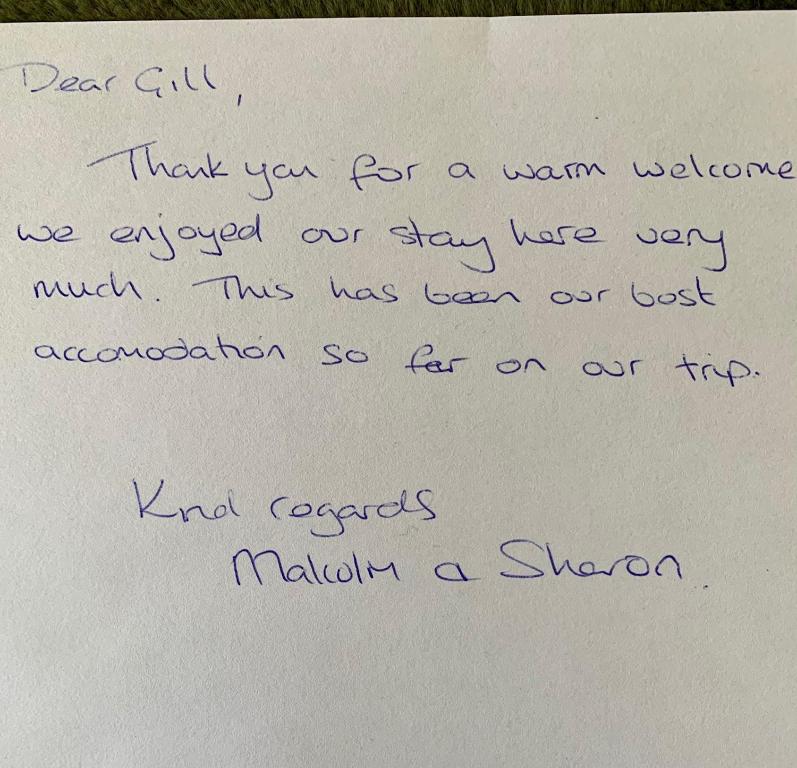 Dear Gill,
Thank you for a warm welcome
we enjoyed our stay here very
much. This has been our best
accomodation so far on our trip.
Kind regards
Malcolm & Sharon.